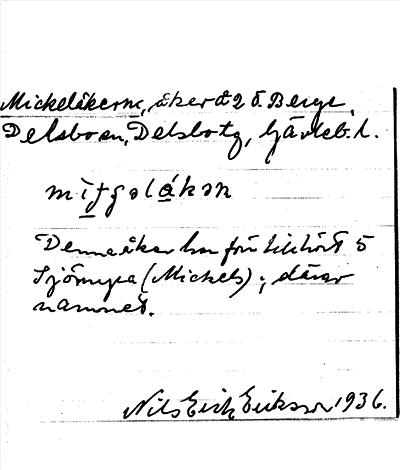 Mickelåkern, åker å 2 Ö. Berge,
Delsbo sn, Delsbo tg, Gävleb. l.
Denna åker har förr tillhört 5
Sjömyra (Mickels); därav
namnet.
Nils Erik Eriksson 1936.